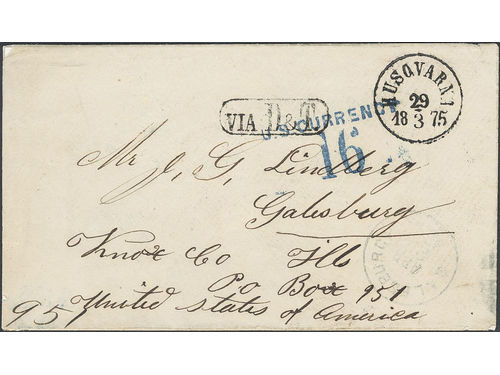 HUSQVARNA
29
18 3 75
VIA D&T.
U.S. CURRENCY
16
Mr J. G. Lindberg
Galesburg
Knox Co Ills
Po Box 951
95 United states of America